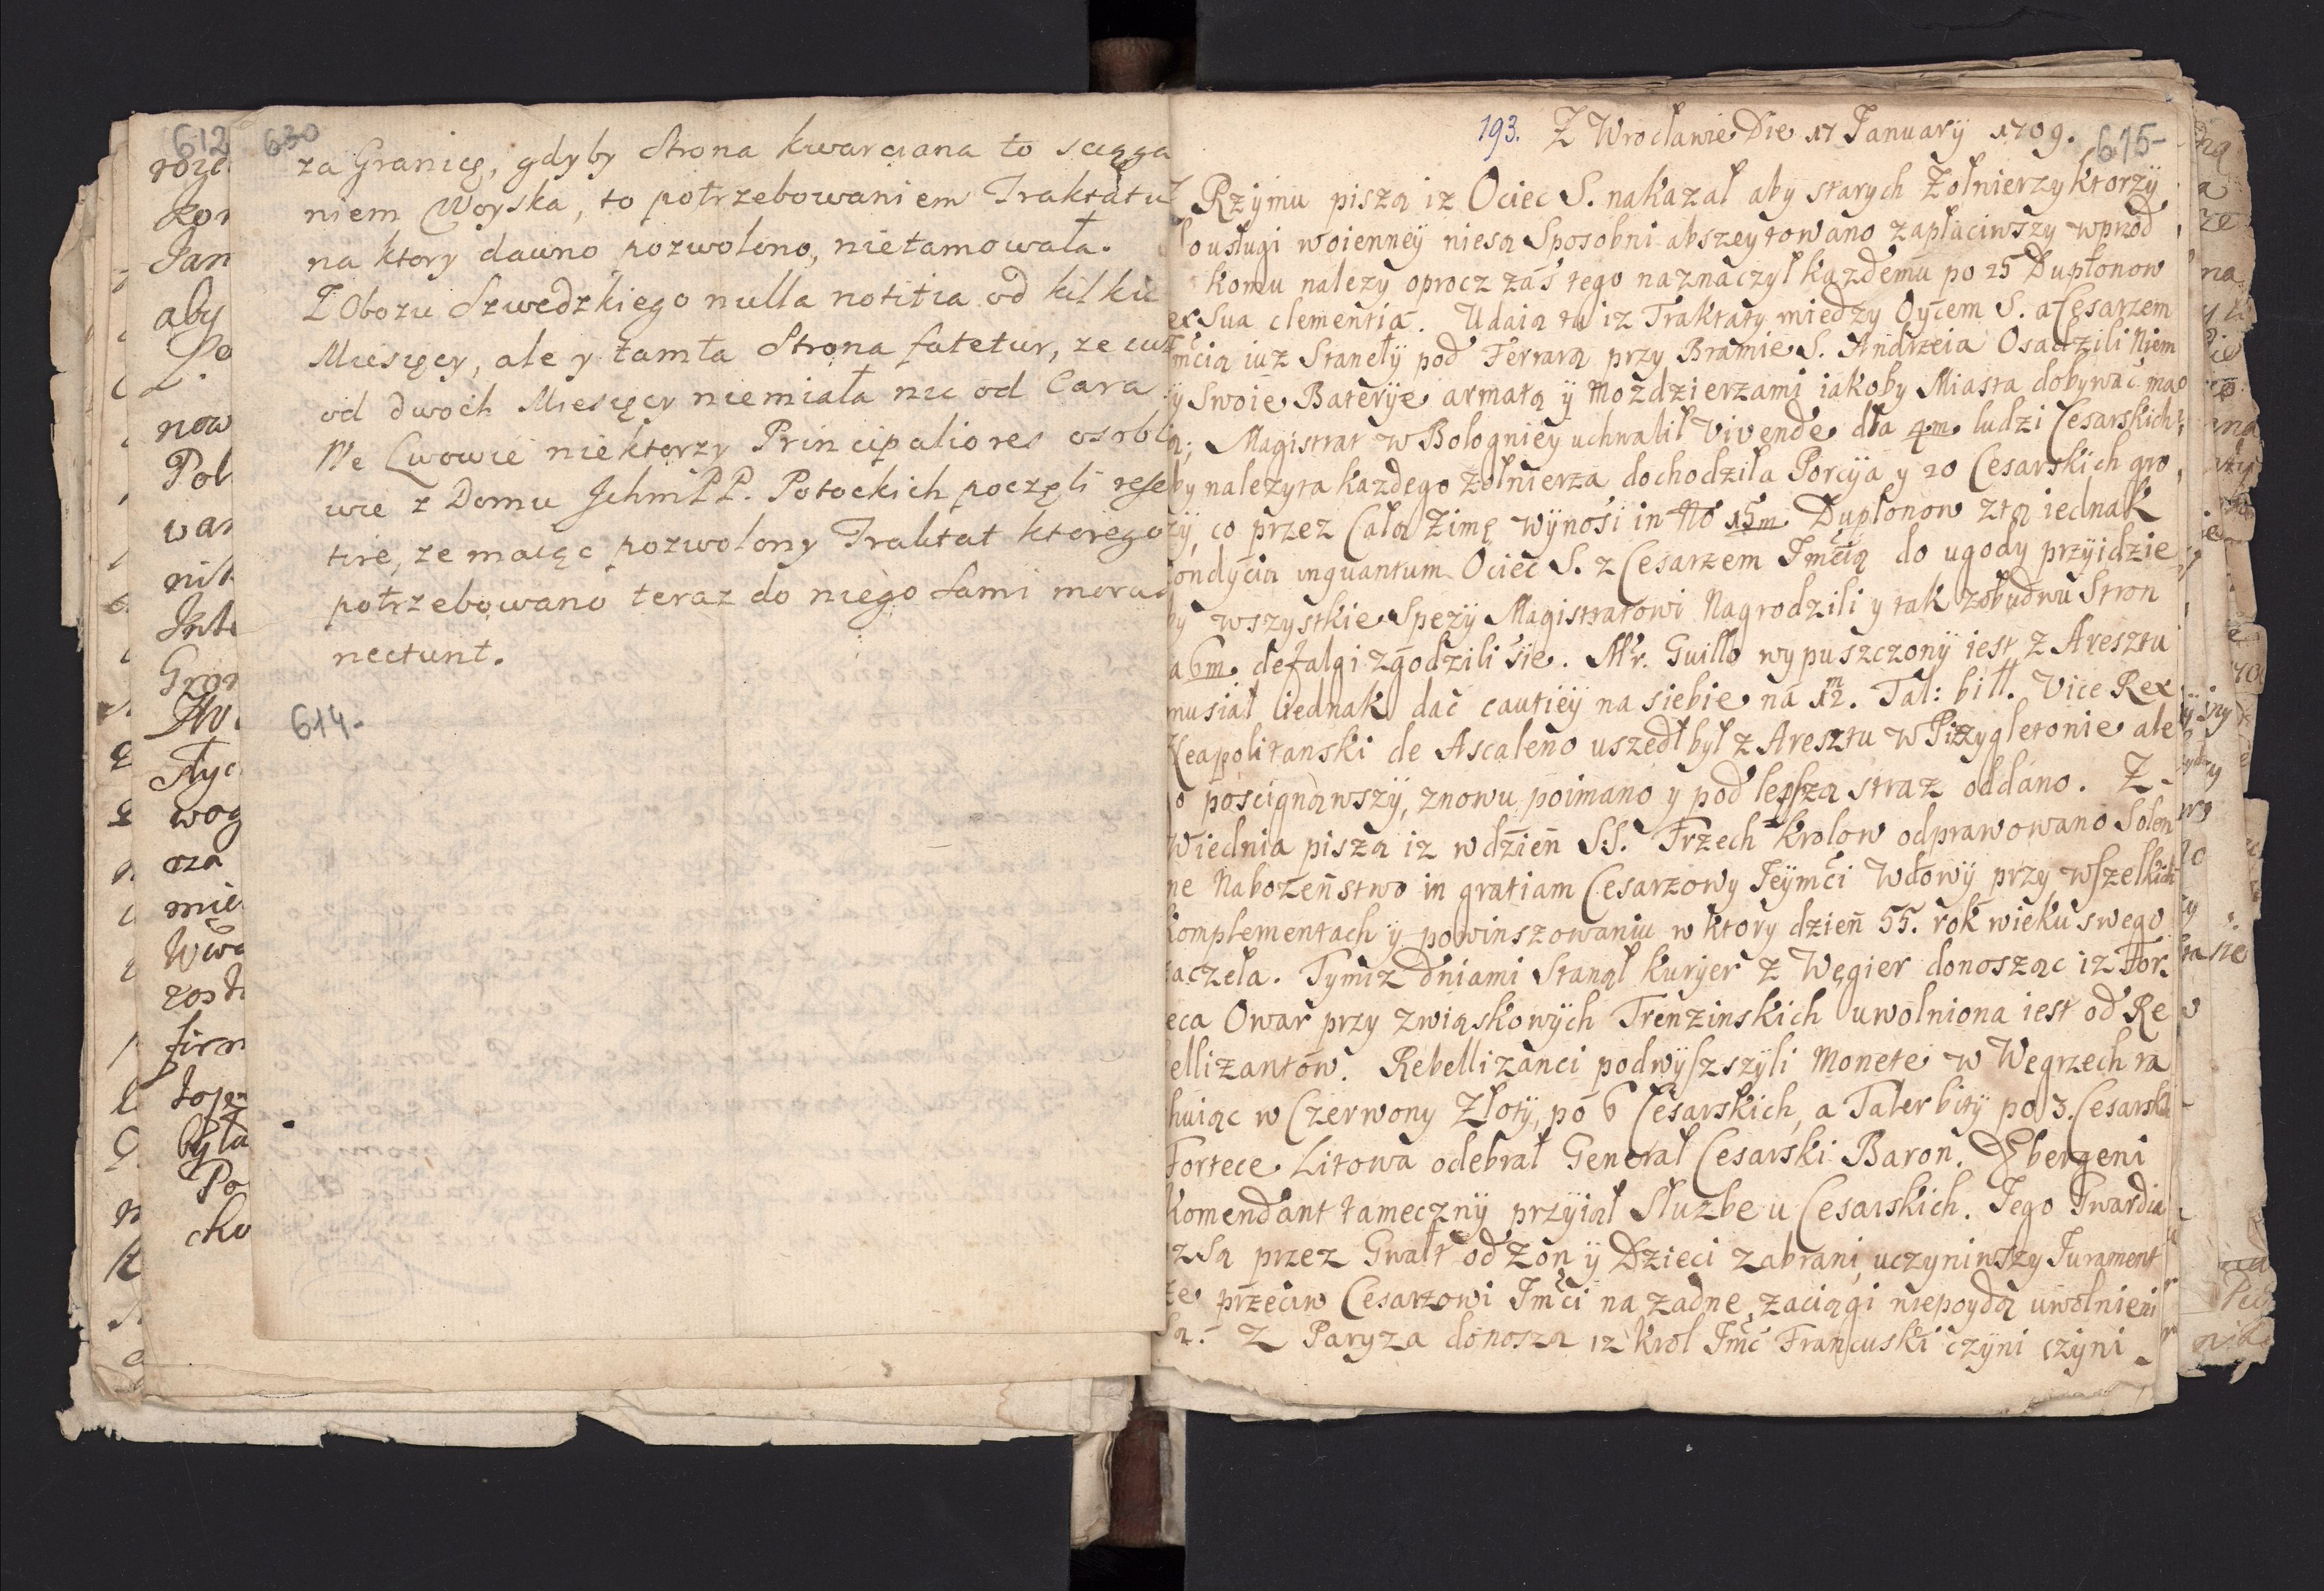 612
630
za Granicę, gdyby Strona kwarciana to sciąga
niem Woyska, to potrzebowaniem Traktatu
na ktory dawno pozwolono, nietamowała.
Z Obozu Szwedzkiego nulla notitia od kilku
Miesięcy, ale y tamta Strona fatetur, ze iuz
od dwoch Miesięcy niemiała nic od Cara
We Lwowie niektorzy Principaliores osobli
wie z Domu JchmPP. Potockich poczęli rese
tire, ze maiąc pozwolony Traktat ktorego
potrzebowano teraz do niego sami moras
nectunt.
614.
193. Z Wrocławie Die 17 January 1709. 615
Z Rzÿmu piszą iz Ociec S. nakazał aby starych Zołnierzy ktorzÿ
do usługi woienneÿ niesą Sposobni abszeytowano zapłaciwszy wprzod
komu nalezy oprocz zas tego naznaczył kazdemu po 25 Dupłonow
ex Sua clementia. Udaią tu iz Traktaty miedzy Oycem S. a Cesarzem
Jmcią iuz Stanełÿ pod Ferrarą przy Bramie S. Andrzeia Osadzili Niem
cÿ Swoie Baterÿe armatą ÿ Mozdzierzami iakoby Miasta dobywac mao
ią; Magistrat w Bologniey uchwalił Vivende dla 4m ludzi Cesarskich
by nalezyta kazdego zołnierza dochodziła Porcÿa y 20 Cesarskich gro
szÿ, co przez Całą Zimę wÿnosi in No 15m Dupłonow z tą iednak
Condÿcią inquantum Ociec S. z Cesarzem Jmcią do ugody przÿidzie
by wszystkie Spezÿ Magistratowi Nagrodzili y tak zobudwu Stron
na 6m defalgi zgodzili sie. Mr. Guillo wypuszczonÿ iest z Aresztu
musiał iednak dac cautieÿ na siebie na 12m. Tal: bitt. Vice Rex
Neapolitanski de Ascaleno uszedł był z Aresztu w Pizzygletonie ale
go poscignąwszÿ, znowu poimano y pod lepszą straz oddano. Z
Wiednia piszą iz w dzien SS. Trzech krolow odprawowano Solen
ne Nabozenstwo in gratiam Cesarzowy Jeÿmci Wdowÿ przy wszelkich
komplementach ÿ powinszowaniu w ktory dzien 55. rok wieku swego
zaczeła. Tymiz dniami Stanął kurÿer z Węgier donosząc iz For
teca Owar przy związkowÿch Trenzinskich uwolniona iest od Re
bellizantow. Rebellizanci podwÿszszÿli Monete w Wegrzech ra
chuiąc w Czerwony Złotÿ, po 6 Cesarskich, a Taler bitÿ po 3. Cesarskich
Fortece Litowa odebrał Generał Cesarski Baron. Ebergeni
Komendant tamecznÿ przÿiął Służbe u Cesarskich. Jego Gwardia
iz są przez Gwałt od Zon ÿ Dzieci zabrani uczyniwszy Jurament
ze przeciw Cesarzowi Jmci na zadne zaciągi niepoydą uwolnieni
są. Z Paryza donoszą iz krol Jmc Francuski czÿni czÿni